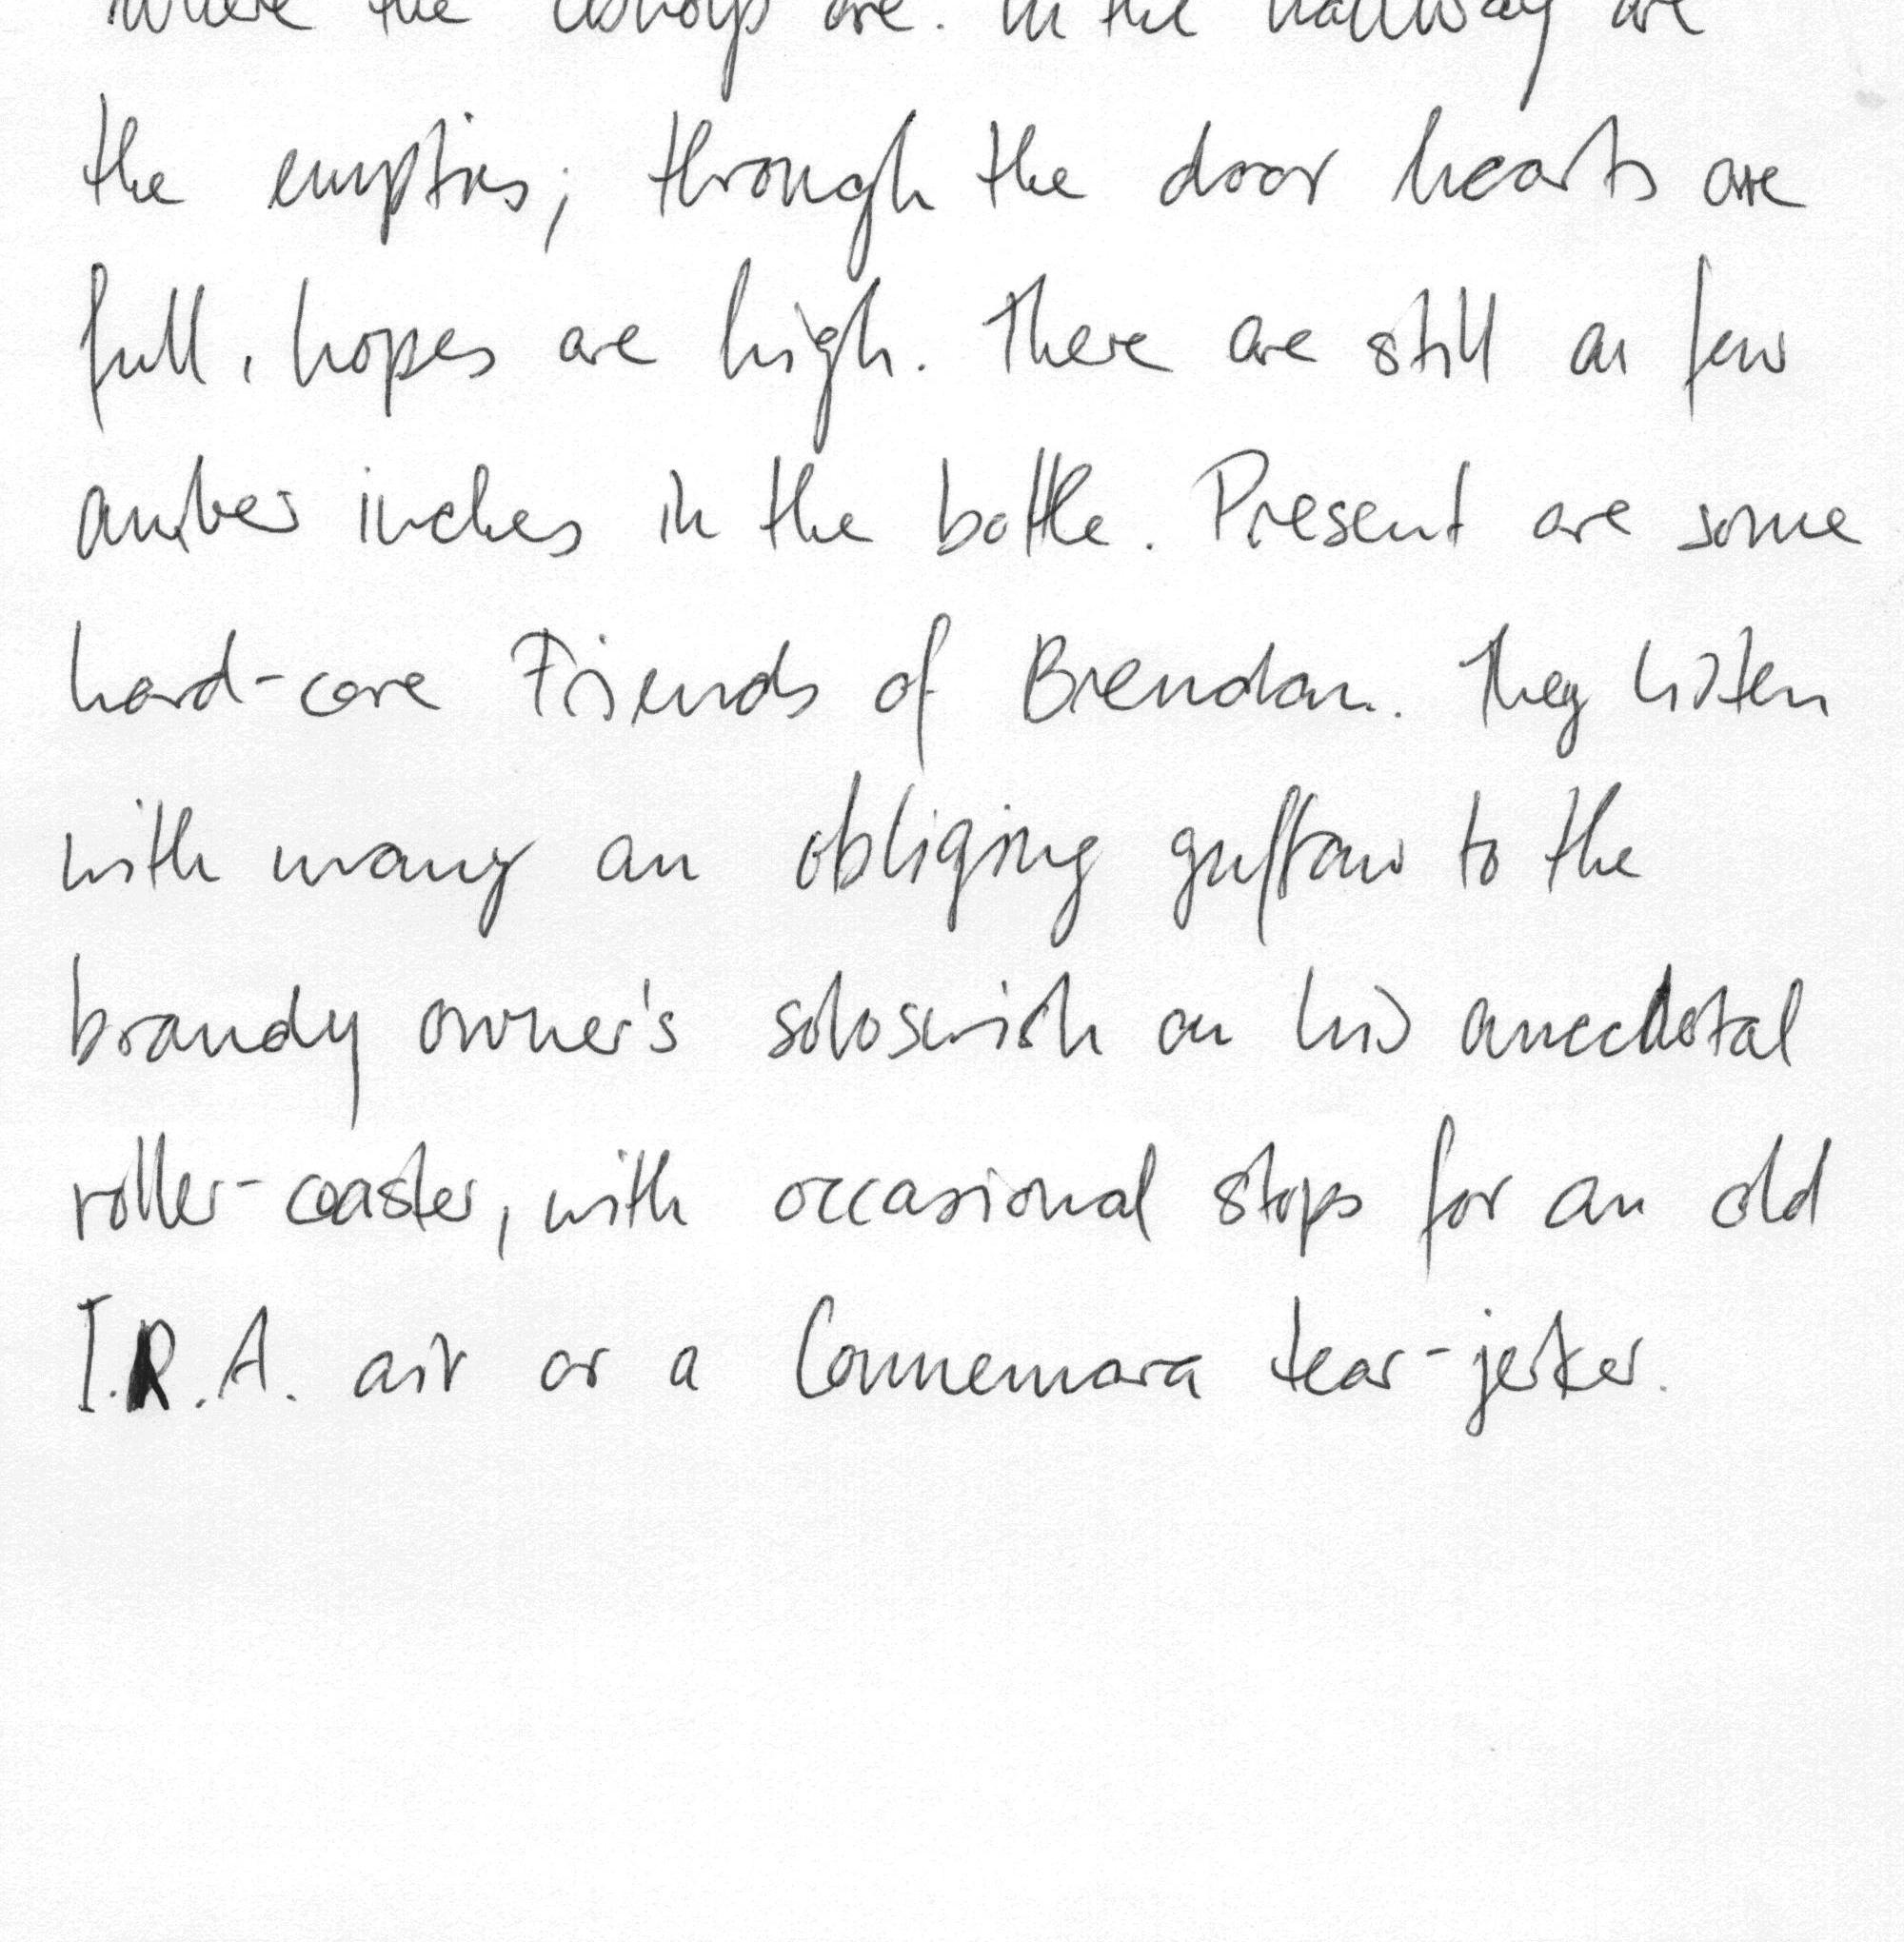 where the are. In the hallway are
the empties; through the door hearts are
full, hopes are high. There are still a few
amber inches in the bottle. Present are some
hard-core Friends of Brendan. They listen
with many an obliging guffaw to the
brandy owner's on his anecdotal
roller-coaster, with occasional stops for an old
I.R.A. air or a Connemara tear-jerker.